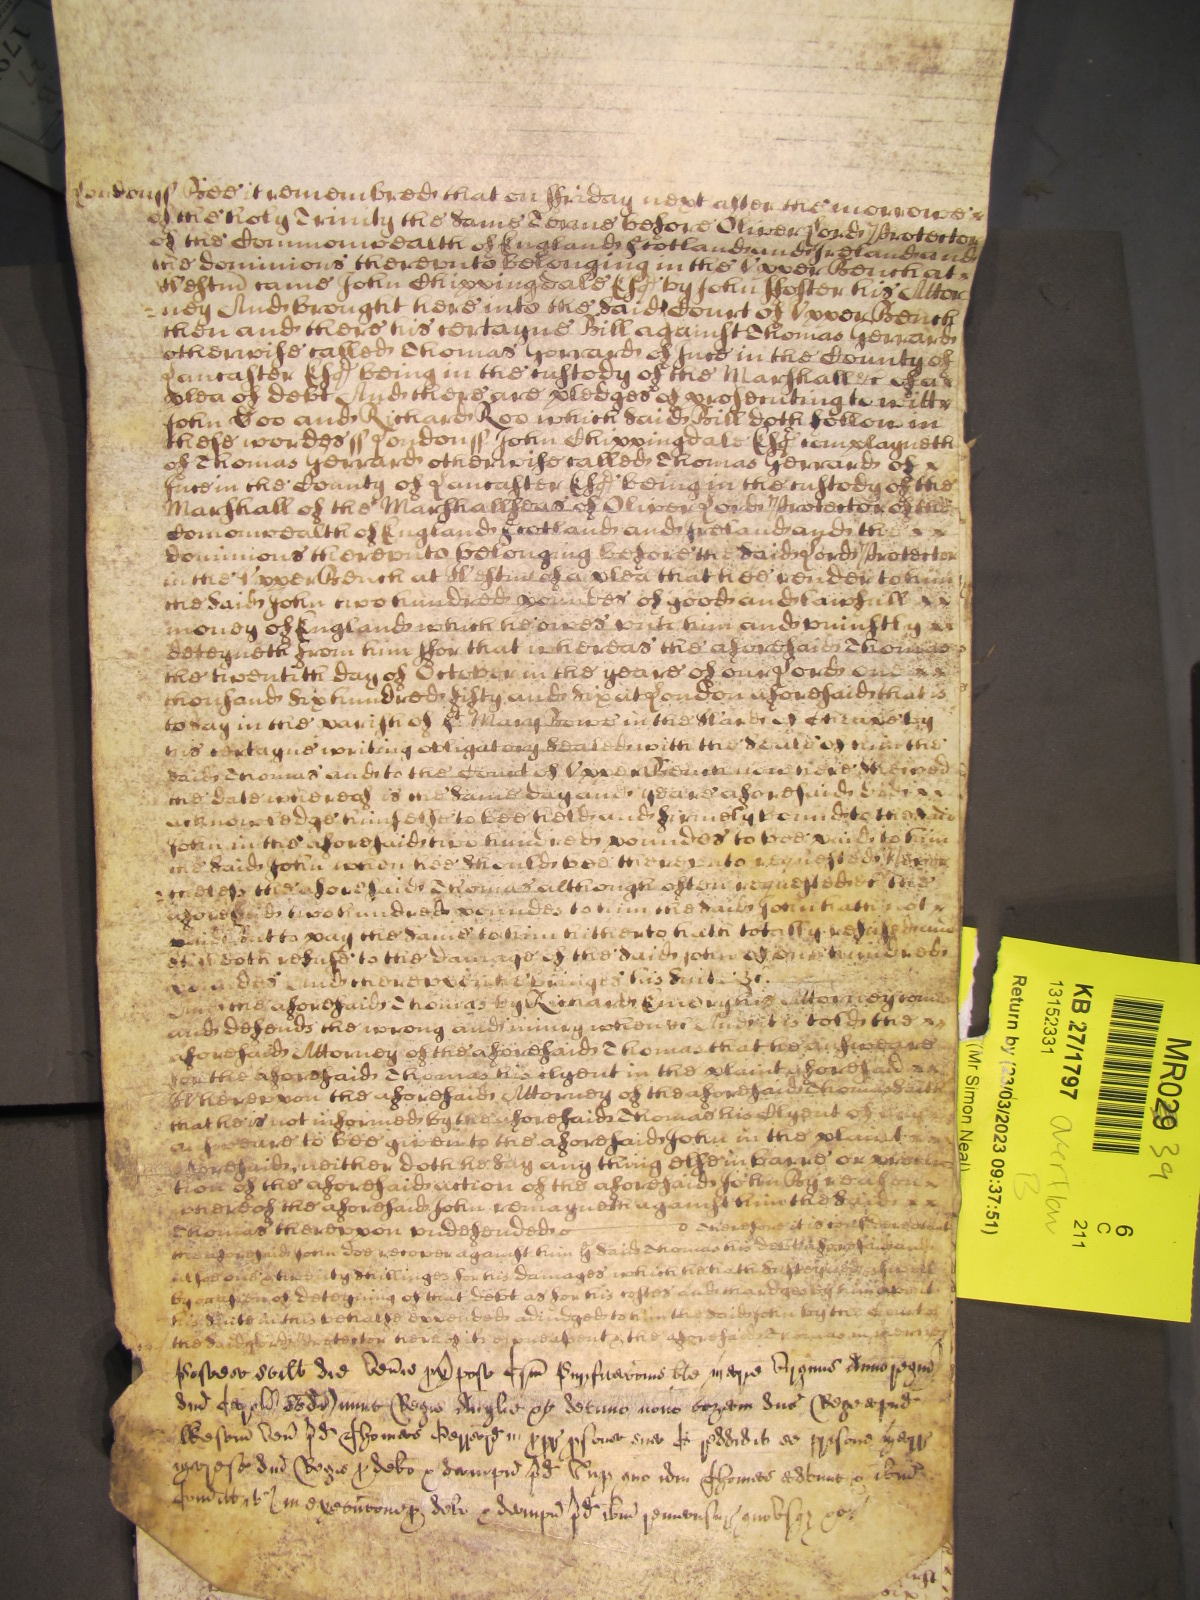 Londonss Bee it remembred that on Ffriday next after the morrowe
of the holy Trinity the same Terme before Oliver Lord Protector
of the Commonwealth of England Scotland and Ireland and
the dominions therevnto belonging in the Vpper Bench at
Westm came John Chippingdale Esqr by John Ffoster his Attor
ney And brought here into the said Court of Vpper Bench
then and there his certayne Bill against Thomas Gerrard
otherwise called Thomas Gerrard of Ince in the County of
Lancaster Esqr being in the custody of the Marshall &c of a
plea of debt And there are pledges of prosecuting to witt
John Doo and Richard Roo which said Bill doth follow in
these wordes ss Londonss John Chippingdale Esqr complayneth
of Thomas Gerrard otherwise called Thomas Gerrard of
Ince in the County of Lancaster Esqr being in the custody of the
Marshall of the Marshallseas of Oliver Lord Protector of the
Comonwealth of England Scotland and Ireland and the
dominions therevnto belonging before the said Lord Protector
in the Vpper Bench at Westm of a plea that hee render to him
the said John two hundred poundes of good and lawfull
money of England which he owes vnto him and vniustly
deteyneth from him Ffor that whereas the aforesaid Thomas
the twentith day of October in the yeare of our Lord one
thousand six hundred fifty and six at London aforesaid that is
to say in the parish of St Mary Bowe in the Ward of Cheape by
his certayne writing obligatory sealed with the seale of him the
said Thomas and to the Court of Vpper Bench now here shewed
the date whereof is the same day and yeare aforesaid did
acknowledge himselfe to bee held and firmely bound to the said
John in the aforesaid two hundred poundes to bee paid to him
the said John when hee should bee therevnto requested Never
theless the aforesaid Thomas although often requested &c the
aforesaid two hundred poundes to him the said John hath not
paid But to pay the same to him hitherto hath totally refused and
still doth refuse to the damage of the said John of one hundred
poundes And therevpon he bringes his suite &c.
And the aforesaid Thomas by Richard Emery his Attorney comes
and defends the wrong and iniury when &c And it is told the
aforesaid Attorney of the aforesaid Thomas that he answeare
for the aforesaid Thomas his clyent in the plaint aforesaid
Wherevpon the aforesaid Attorney of the aforesaid Thomas saith
that he is not informed by the aforesaid Thomas his Clyent of any
answeare to bee given to the aforesaid John in the plaint
aforesaid neither doth he say any thing else in barre or preclu
tion of the aforesaid action of the aforesaid John By reason
whereof the aforesaid John remayneth against him the said
Thomas therevpon vndefended Therefore it is considered that
the aforesaid John doe recover against him the said Thomas his debt aforesaid and
alsoe one & twenty shillinges for his damages which he hath susteyned
by occasion of deteyning of that debt as for his costes and chardges by him about
his suite in this behalfe expended adiudged to him the said John by the Court of
the said Lord Protector here of his owne assent & the aforesaid Thomas in mercy
Postea scilt die ven⁠is px post Crm Purificaconis be Marie Virginis Anno regni
dni Caroli Scdi nunc Regis Anglie &c decimo nono coram dno Rege apud
Westm ven pd Thomas Gerrard in ppr psona sua & reddidit se prisone Marr
Maresc dni Regis p debo & dampn pd Sup quo idm Thomas
comittit in execucone p debo & dampn pd ibm remansur quousq &c
MR029 39
6
C
211
KB 27/1797
13152331
overflow
B
Return by (23/03/2023 09:37:51)
(Mr Simon Neal)